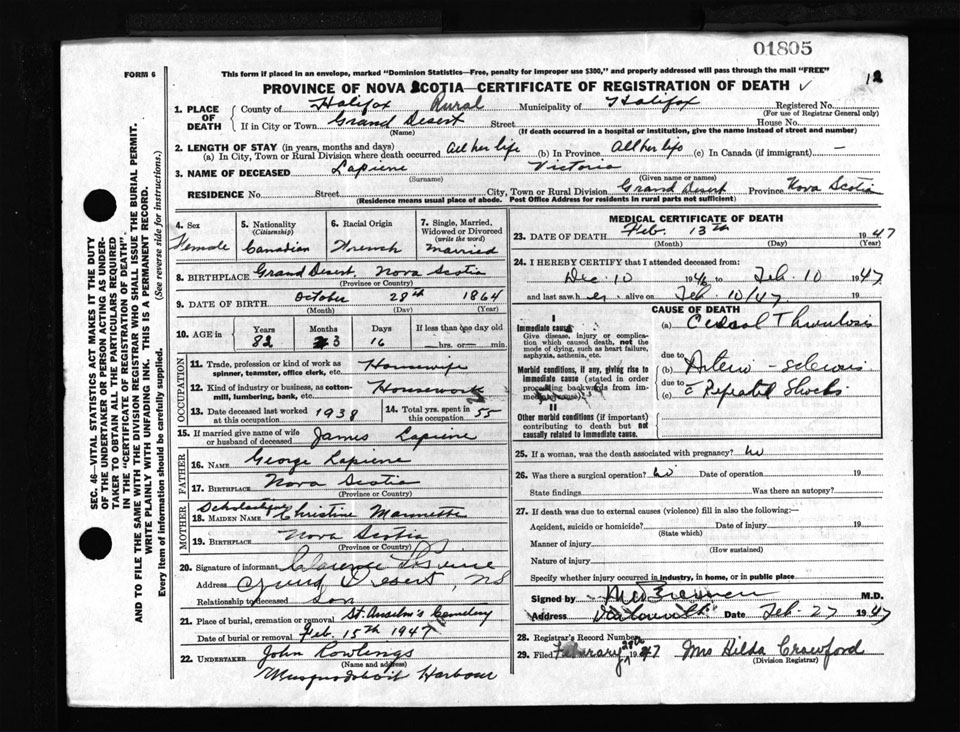 01805
FORM 6
This form if placed in an envelope, marked "Dominion Statistics—Free, penalty for improper use $300," and properly addressed will pass through the mail "FREE"
12
PROVINCE OF NOVA SCOTIA—CERTIFICATE OF REGISTRATION OF DEATH
1. PLACE OF DEATH County of Halifax Rural Municipality of Halifax Registered No.
(For use of Registrar General only)
If in City or Town Grand Desert Street House No.
(Name) (If death occurred in a hospital or institution, give the name instead of street and number)
2. LENGTH OF STAY (in years, months and days)
(a) In City, Town or Rural Division where death occurred all her life (b) In Province All her life (c) In Canada (if immigrant) —
3. NAME OF DECEASED Lapiene Victoria
(Surname) (Given name or names)
RESIDENCE No. Street City, Town or Rural Division Grand Desert Province Nova Scotia
(Residence means usual place of abode. Post Office Address for residents in rural parts not sufficient)
4. Sex Female
5. Nationality (Citizenship) Canadian
6. Racial Origin French
7. Single, Married, Widowed or Divorced (write the word) married
8. BIRTHPLACE Grand Desert, Nova Scotia
(Province or Country)
9. DATE OF BIRTH October 28th 1864
(Month) (Day) (Year)
10. AGE in Years 82 Months 3 Days 16 If less than one day old hrs. or min.
OCCUPATION
11. Trade, profession or kind of work as spinner, teamster, office clerk, etc. Housewife
12. Kind of industry or business, as cotton-mill, lumbering, bank, etc. Housework
13. Date deceased last worked at this occupation 1938
14. Total yrs. spent in this occupation 55
15. If married give name of wife or husband of deceased James Lapiene
FATHER
16. NAME George Lapiene
17. BIRTHPLACE Nova Scotia
(Province or Country)
MOTHER
18. MAIDEN NAME Christine
19. BIRTHPLACE Nova Scotia
(Province or Country)
20. Signature of informant Clarence
Address Grand Desert, NS
Relationship to deceased son
21. Place of burial, cremation or removal St. Anselm's Cemetery
Date of burial or removal Feb. 15th 1947
22. UNDERTAKER John Rowlings
(Name and address)
Musquodoboit Harbour
MEDICAL CERTIFICATE OF DEATH
23. DATE OF DEATH Feb. 13th 1947
(Month) (Day) (Year)
24. I HEREBY CERTIFY that I attended deceased from:
Dec 10 1946 to Feb. 10 1947
and last saw her alive on Feb. 10/47 19
CAUSE OF DEATH
I
Immediate cause
Give disease, injury or complication which caused death, not the mode of dying, such as heart failure, asphyxia, asthenia, etc.
(a)
due to
Morbid conditions, if any, giving rise to immediate cause (stated in order proceeding backwards from immediate cause)
(b) Arterio-sclerosis
due to
(c) Repeated Shocks
II
Other morbid conditions (if important) contributing to death but not causally related to immediate cause.
25. If a woman, was the death associated with pregnancy? no
26. Was there a surgical operation? no Date of operation 19
State findings Was there an autopsy?
27. If death was due to external causes (violence) fill in also the following:—
Accident, suicide or homicide? Date of injury 19
(State which)
Manner of injury
(How sustained)
Nature of injury
Specify whether injury occurred in industry, in home, or in public place
Signed by M.D.
Address Date Feb. 27 1947
28. Registrar's Record Number
29. Filed February 28th 1947 Mrs Hilda Crawford
(Division Registrar)
SEC. 46—VITAL STATISTICS ACT MAKES IT THE DUTY
OF THE UNDERTAKER OR PERSON ACTING AS UNDERTAKER TO OBTAIN ALL THE PARTICULARS REQUIRED
IN THE "CERTIFICATE OF REGISTRATION OF DEATH",
AND TO FILE THE SAME WITH THE DIVISION REGISTRAR WHO SHALL ISSUE THE BURIAL PERMIT.
WRITE PLAINLY WITH UNFADING INK. THIS IS A PERMANENT RECORD.
Every item of information should be carefully supplied. (See reverse side for instructions.)